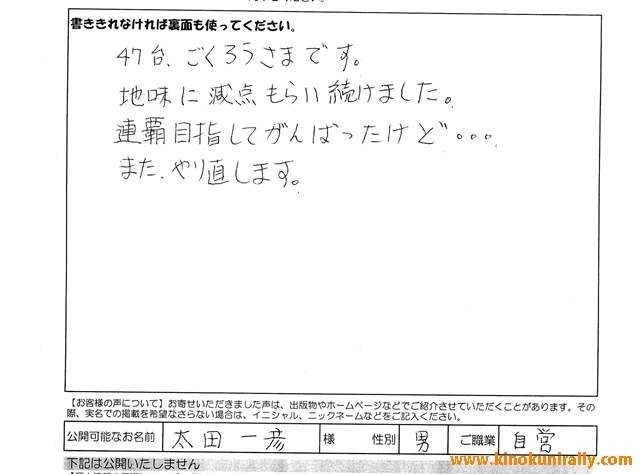 書ききれなければ裏面も使ってください。
47台、ごくろうさまです。
地味に減点もらい続けました。
連覇目指してがんばったけど・・・
また、やり直します。
【お客様の声について】お寄せいただきました声は、出版物やホームページなどでご紹介させていただくことがあります。その
際、実名での掲載を希望なさらない場合は、イニシャル、ニックネームなどをご記入ください。
公開可能なお名前 太田一彦 様 性別 男 ご職業 自営
www.kinokunirally.com
下記は公開いたしません